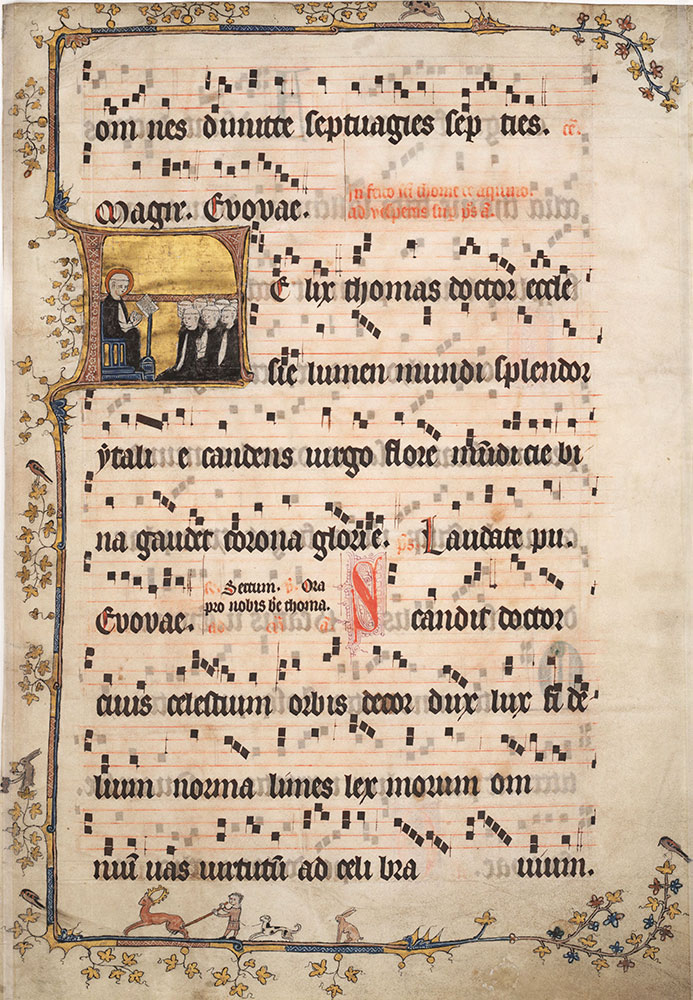 om nes dimitte septuagies sep ties.
Magir. Evovae.
In festo
ad vesperas sup ps a.
F E lix thomas doctor eccle
sie lumen mundi splendor
ytali e candens virgo flore mūdicie bi
na gaudet corona glorie. ps Laudate pu.
Evovae. Sertum. v. Ora
pro nobis bē thoma.
S candit doctor
civis celestium orbis decor dux lux fi de
lium norma limes lex morum om
niū vas virtutū ad celi bra vium.